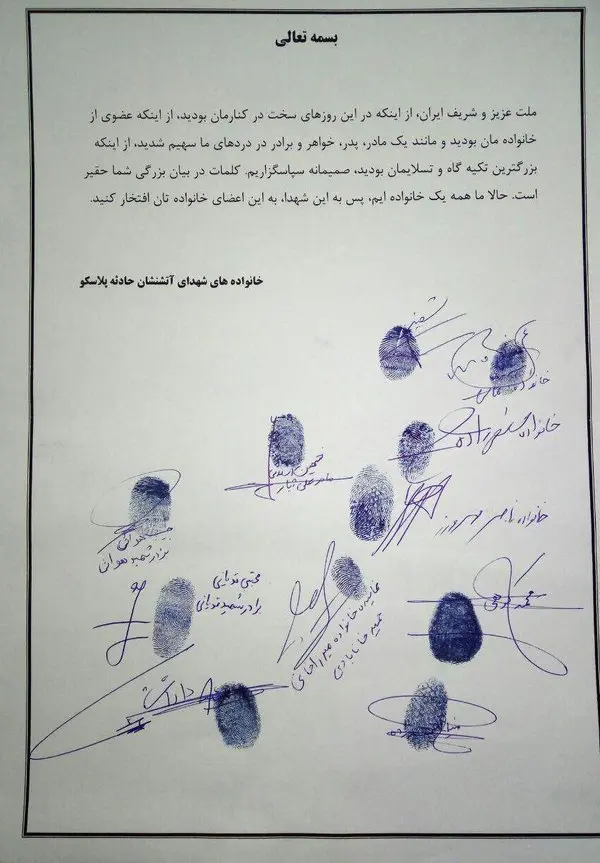 بسمه تعالی
ملت عزیز و شریف ایران، از اینکه در این روزهای سخت در کنارمان بودید، از اینکه عضوی از
خانواده مان بودید و مانند یک مادر، پدر، خواهر و برادر در دردهای ما سهیم شدید، از اینکه
بزرگترین تکیه گاه و تسلایمان بودید، صمیمانه سپاسگزاریم. کلمات در بیان بزرگی شما حقیر
است. حالا ما همه یک خانواده ایم، پس به این شهدا، به این اعضای خانواده تان افتخار کنید.
خانواده های شهدای آتشنشان حادثه پلاسکو
خانواده
خانواده سلطان زاده
خانواده ناصر مهرورز
برادر شهید هوائی
مجتبی قدیانی
برادر شهید قدیانی
نماینده خانواده میرزاخانی